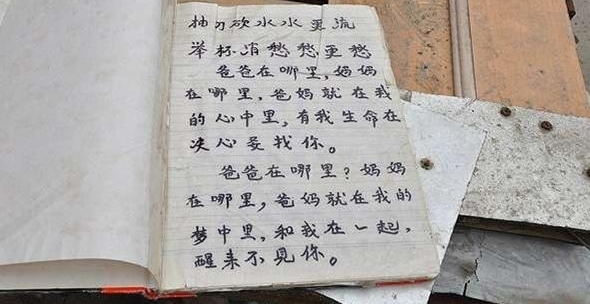 抽刀砍水水更流
举杯消愁愁更愁
爸爸在哪里，妈妈
在哪里，爸妈就在我
的心中里，有我生命在
决心要找你。
爸爸在哪里？妈妈
在哪里，爸妈就在我的
梦中里，和我在一起，
醒来不见你。